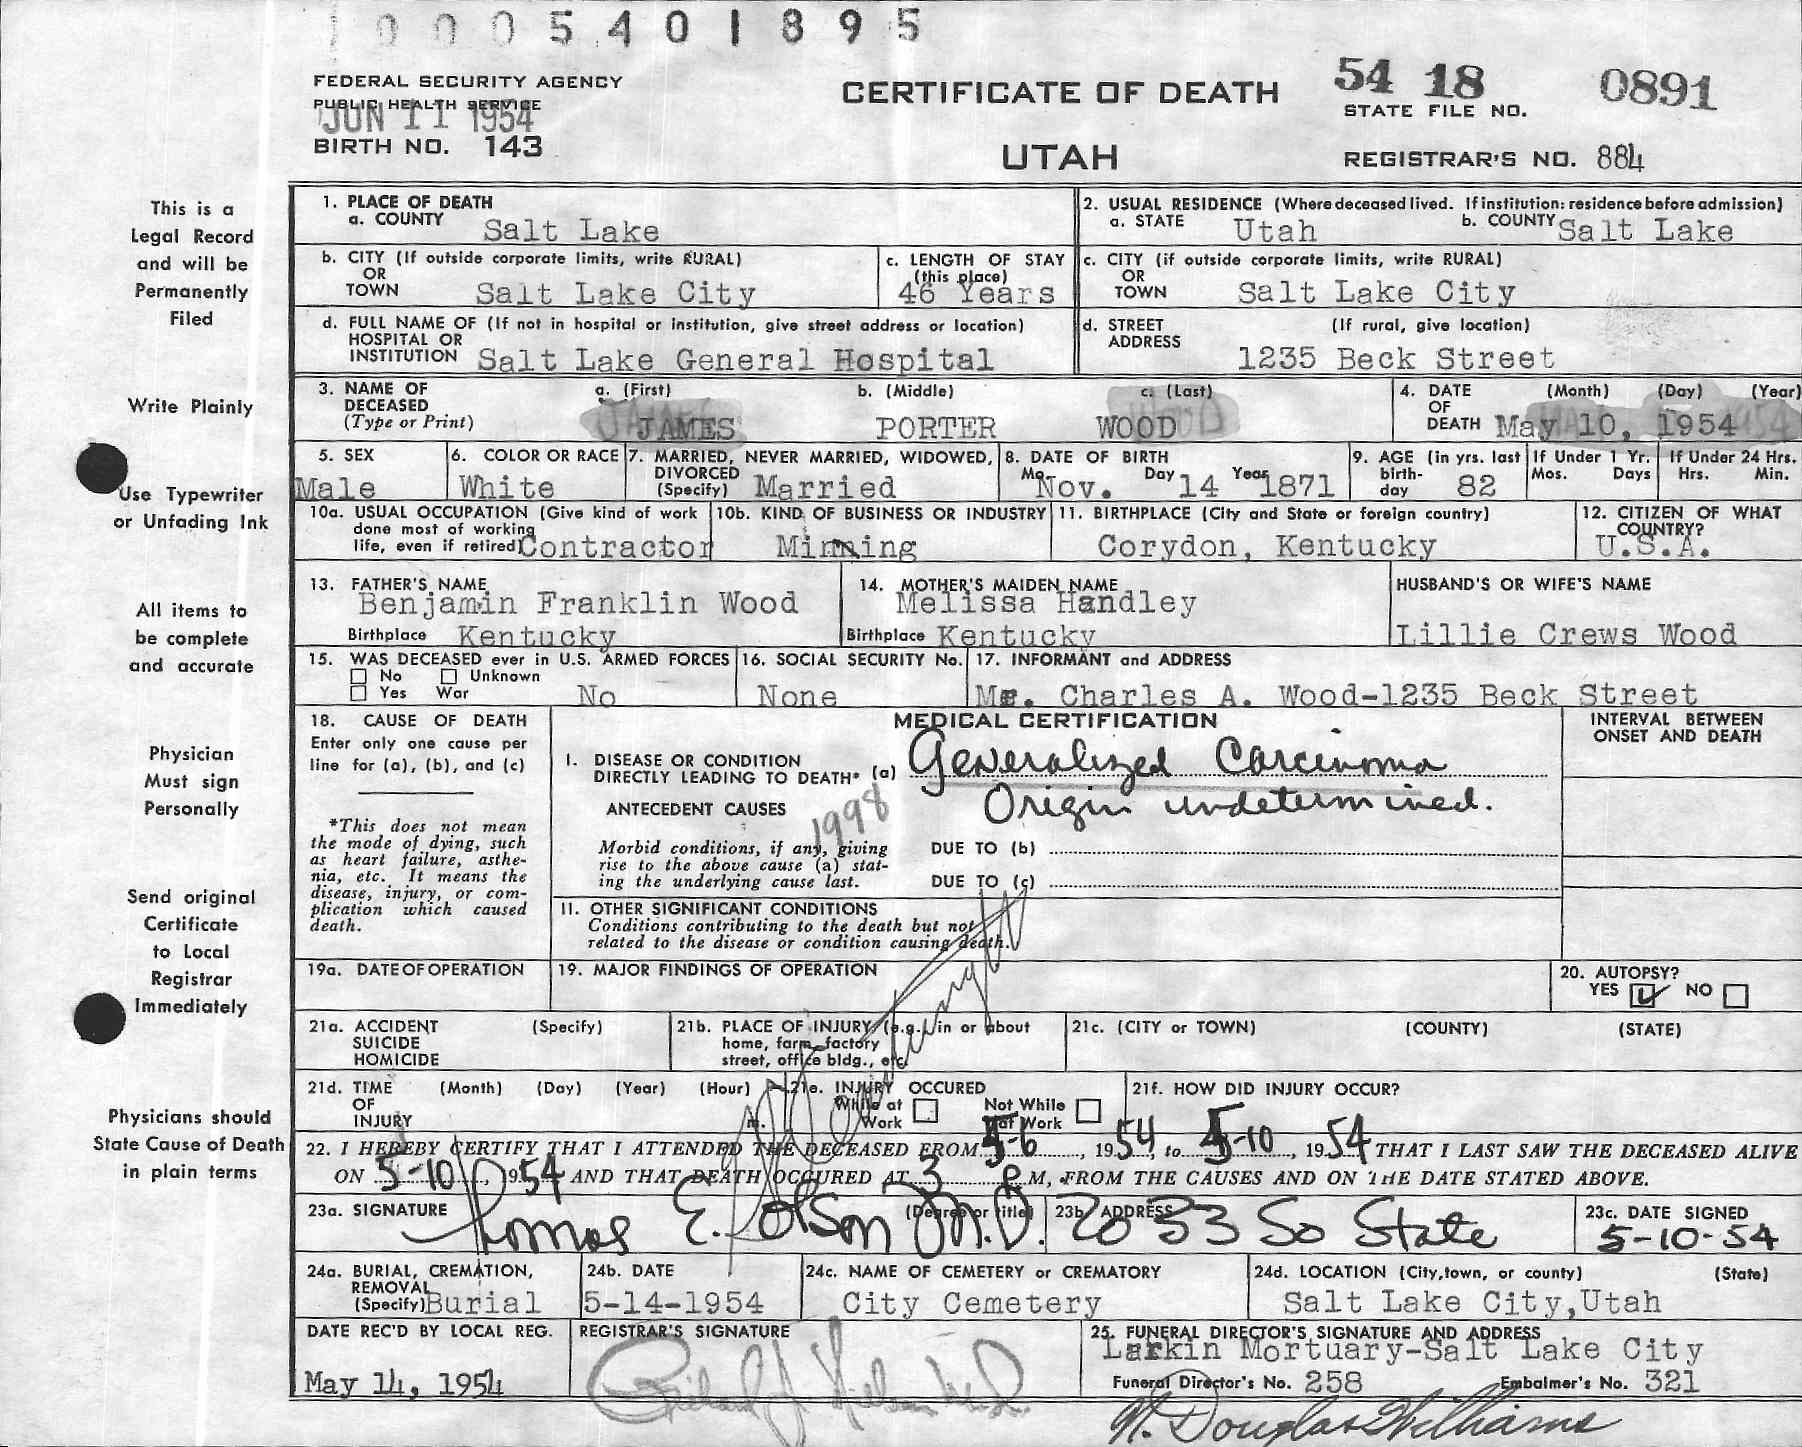 10005401895
FEDERAL SECURITY AGENCY
PUBLIC HEALTH SERVICE
JUN 11 1954
BIRTH NO. 143
CERTIFICATE OF DEATH
UTAH
54 18 0891
STATE FILE NO.
REGISTRAR'S NO. 884
This is a
Legal Record
and will be
Permanently
Filed
Write Plainly
Use Typewriter
or Unfading Ink
All items to
be complete
and accurate
Physician
Must sign
Personally
Send original
Certificate
to Local
Registrar
Immediately
Physicians should
State Cause of Death
in plain terms
1. PLACE OF DEATH
a. COUNTY Salt Lake
2. USUAL RESIDENCE (Where deceased lived. If institution: residence before admission)
a. STATE Utah b. COUNTY Salt Lake
b. CITY (If outside corporate limits, write RURAL)
OR
TOWN Salt Lake City
c. LENGTH OF STAY
(this place)
46 Years
c. CITY (if outside corporate limits, write RURAL)
OR
TOWN Salt Lake City
d. FULL NAME OF (If not in hospital or institution, give street address or location)
HOSPITAL OR
INSTITUTION Salt Lake General Hospital
d. STREET (If rural, give location)
ADDRESS
1235 Beck Street
3. NAME OF a. (First) b. (Middle) c. (Last)
DECEASED
(Type or Print) JAMES PORTER WOOD
4. DATE (Month) (Day) (Year)
OF
DEATH May 10, 1954
5. SEX
Male
6. COLOR OR RACE
White
7. MARRIED, NEVER MARRIED, WIDOWED,
DIVORCED
(Specify) Married
8. DATE OF BIRTH
Mo. Nov. Day 14 Year 1871
9. AGE (in yrs. last
birth-
day 82
If Under 1 Yr.
Mos. Days
If Under 24 Hrs.
Hrs. Min.
10a. USUAL OCCUPATION (Give kind of work
done most of working
life, even if retired) Contractor
10b. KIND OF BUSINESS OR INDUSTRY
Mining
11. BIRTHPLACE (City and State or foreign country)
Corydon, Kentucky
12. CITIZEN OF WHAT
COUNTRY?
U.S.A.
13. FATHER'S NAME
Benjamin Franklin Wood
Birthplace Kentucky
14. MOTHER'S MAIDEN NAME
Melissa Handley
Birthplace Kentucky
HUSBAND'S OR WIFE'S NAME
Lillie Crews Wood
15. WAS DECEASED ever in U.S. ARMED FORCES
No Unknown
Yes War No
16. SOCIAL SECURITY No.
None
17. INFORMANT and ADDRESS
Mr. Charles A. Wood-1235 Beck Street
18. CAUSE OF DEATH
Enter only one cause per
line for (a), (b), and (c)
*This does not mean
the mode of dying, such
as heart failure, asthe-
nia, etc. It means the
disease, injury, or com-
plication which caused
death.
MEDICAL CERTIFICATION
INTERVAL BETWEEN
ONSET AND DEATH
I. DISEASE OR CONDITION
DIRECTLY LEADING TO DEATH* (a) Generalized Carcinoma
Origin undetermined.
ANTECEDENT CAUSES
1998
Morbid conditions, if any, giving
rise to the above cause (a) stat-
ing the underlying cause last.
DUE TO (b)
DUE TO (c)
11. OTHER SIGNIFICANT CONDITIONS
Conditions contributing to the death but not
related to the disease or condition causing death.
19a. DATE OF OPERATION
19. MAJOR FINDINGS OF OPERATION
20. AUTOPSY?
YES NO
21a. ACCIDENT (Specify)
SUICIDE
HOMICIDE
21b. PLACE OF INJURY (e.g. in or about
home, farm, factory
street, office bldg., etc.
21c. (CITY or TOWN) (COUNTY) (STATE)
21d. TIME (Month) (Day) (Year) (Hour)
OF
INJURY m.
21e. INJURY OCCURED
While at Work Not While at Work
21f. HOW DID INJURY OCCUR?
22. I HEREBY CERTIFY THAT I ATTENDED THE DECEASED FROM 5-6, 1954, to 5-10, 1954 THAT I LAST SAW THE DECEASED ALIVE
ON 5-10, 1954 AND THAT DEATH OCCURED AT 3 P M, FROM THE CAUSES AND ON THE DATE STATED ABOVE.
23a. SIGNATURE (Degree or title)
Thomas E. Olson M.D.
23b. ADDRESS
2033 So State
23c. DATE SIGNED
5-10-54
24a. BURIAL, CREMATION,
REMOVAL
(Specify) Burial
24b. DATE
5-14-1954
24c. NAME OF CEMETERY or CREMATORY
City Cemetery
24d. LOCATION (City, town, or county) (State)
Salt Lake City, Utah
DATE REC'D BY LOCAL REG.
May 14, 1954
REGISTRAR'S SIGNATURE
25. FUNERAL DIRECTOR'S SIGNATURE AND ADDRESS
Larkin Mortuary-Salt Lake City
Funeral Director's No. 258 Embalmer's No. 321
N. Douglas Williams